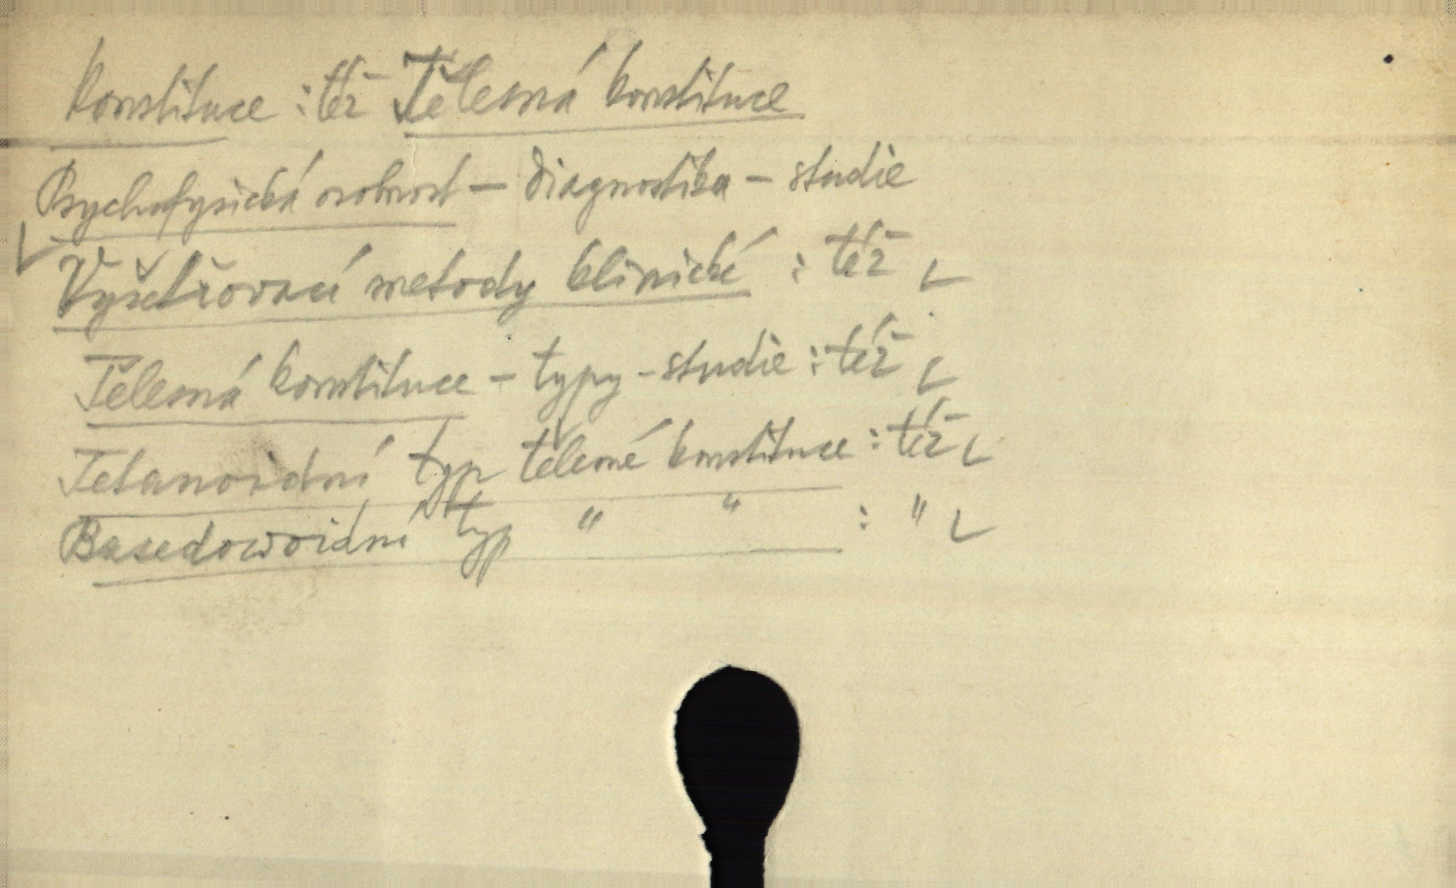 Konstituce : též Tělesná konstituce
Psychofysická osobnost – diagnostika – studie
Vyšetřovací metody klinické : též
Tělesná konstituce – typy – studie : též
Tetanoidní typ tělesné konstituce : též
Basedowoidní typ " " : "